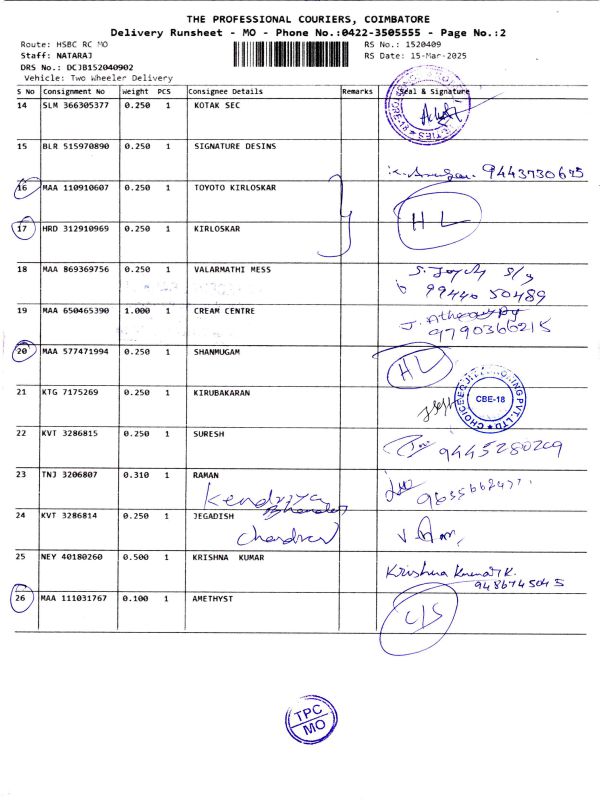 THE PROFESSIONAL COURIERS, COIMBATORE
Delivery Runsheet - MO - Phone No.:0422-3505555 - Page No.:2
Route: HSBC RC MO RS No.: 1520409
Staff: NATARAJ RS Date: 15-Mar-2025
DRS No.: DCJB152040902
Vehicle: Two Wheeler Delivery
S No Consignment No Weight PCS Consignee Details Remarks Seal & Signature
14 SLM 366305377 0.250 1 KOTAK SEC
15 BLR 515970890 0.250 1 SIGNATURE DESINS
9443730675
16 MAA 110910607 0.250 1 TOYOTO KIRLOSKAR
HL
17 HRD 312910969 0.250 1 KIRLOSKAR
18 MAA 869369756 0.250 1 VALARMATHI MESS
99440 50489
19 MAA 650465390 1.000 1 CREAM CENTRE
9790366215
20 MAA 577471994 0.250 1 SHANMUGAM HL
21 KTG 7175269 0.250 1 KIRUBAKARAN
CBE-18
22 KVT 3286815 0.250 1 SURESH
9445280209
23 TNJ 3206807 0.310 1 RAMAN
Kendriya
Bhandar
24 KVT 3286814 0.250 1 JEGADISH
Chandran
25 NEY 40180260 0.500 1 KRISHNA KUMAR
Krishna Kumar K.
9486745045
26 MAA 111031767 0.100 1 AMETHYST
C/S
TPC
MO